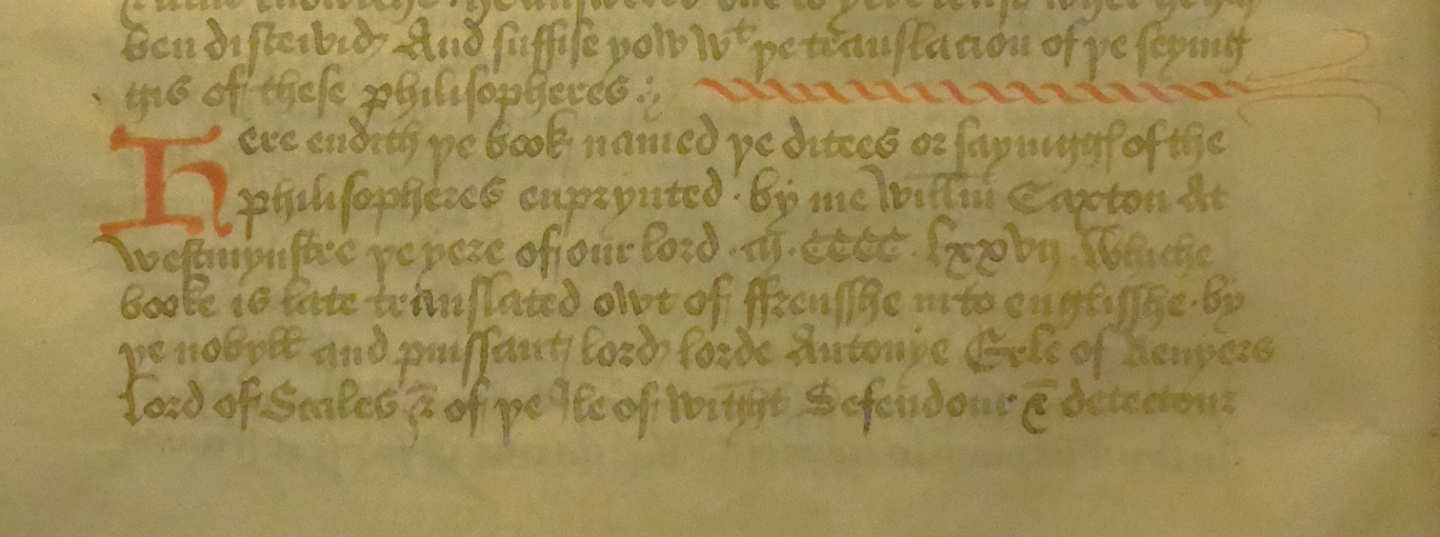 ben disteivid And suffise yow wt þe translacion of þe seying
gis of these philisopheres
Here endith þe book named þe ditees or sayinggis of the
philisopheres enprynted · by me Willm Caxton At
westmynstre þe yere of our lord · M · CCCC · lxxvij Whiche
booke is late translated owt of ffrensshe in to englisshe · by
þe nobyll and puissant lord lorde Antonye Erle of Reuyers
Lord of Scales & of þe Ile of wight Defendour & detectour